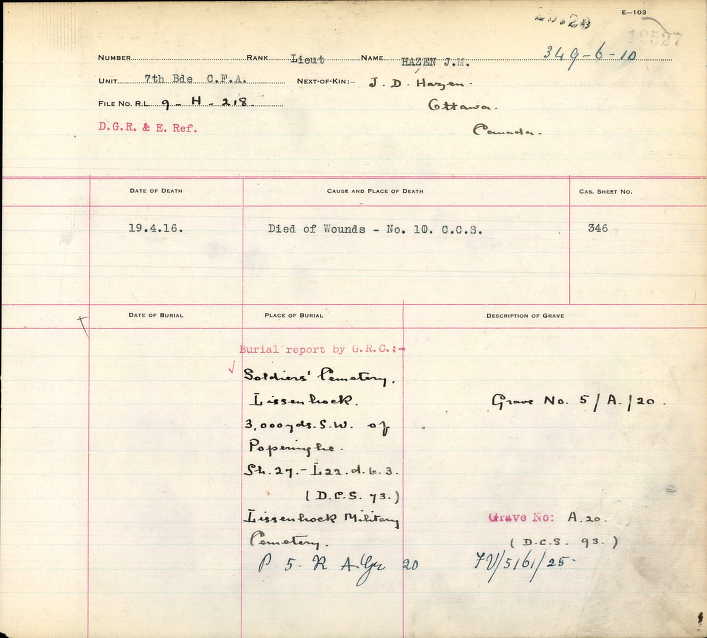 E—103
NUMBER RANK Lieut NAME HAZEN J.M. 349-6-10
UNIT 7th Bde C.F.A. NEXT-OF-KIN:— J. D. Hazen.
FILE NO. R.L. 9 - H - 218. Ottawa.
D.G.R. & E. Ref. Canada.
DATE OF DEATH CAUSE AND PLACE OF DEATH CAS. SHEET NO.
19.4.16. Died of Wounds - No. 10. C.C.S. 346
DATE OF BURIAL PLACE OF BURIAL DESCRIPTION OF GRAVE
Burial report by G.R.C.:-
Soldiers' Cemetery,
Lissenhock. Grave No. 5/A./20.
3,000yds. S.W. of
Poperinghe.
Sh. 27. - L22. d. 6. 3.
(D.C.S. 73.)
Lissenhock Military Grave No: A.20.
Cemetery. (D.C.S. 93.)
P 5. R A. Gr 20